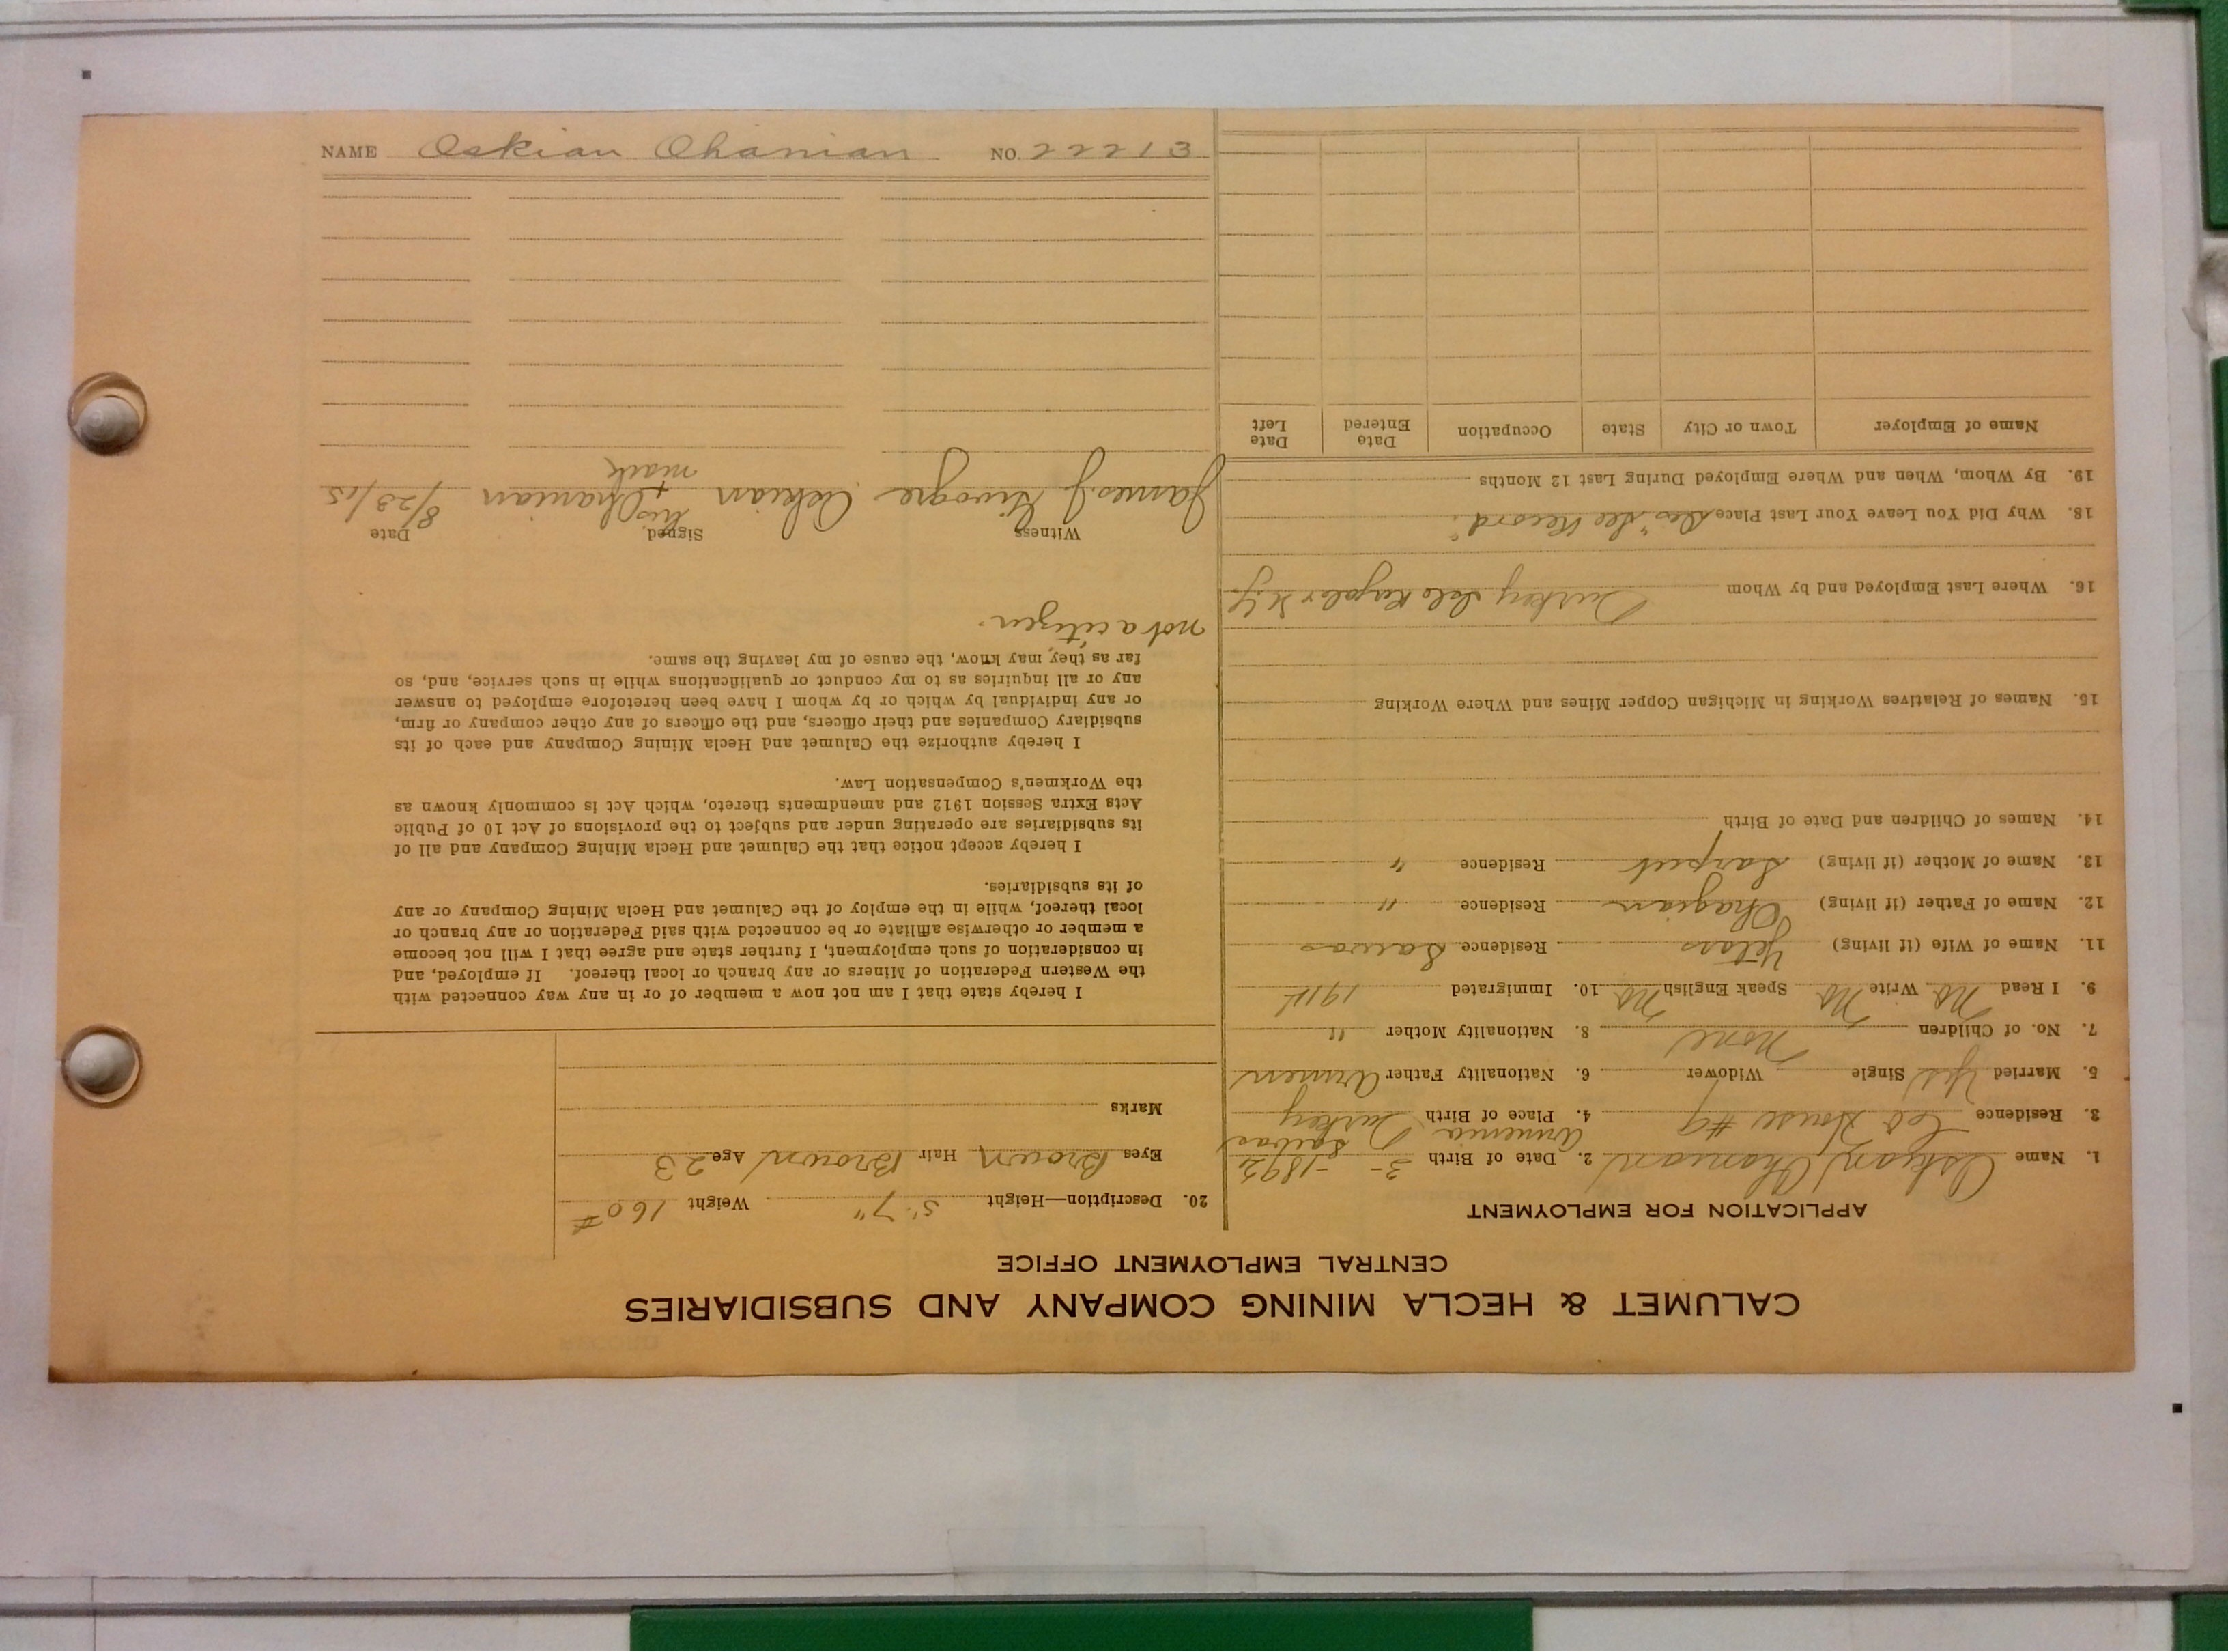 CALUMET & HECLA MINING COMPANY AND SUBSIDIARIES
CENTRAL EMPLOYMENT OFFICE
APPLICATION FOR EMPLOYMENT
1. Name Oskian Ohanian 2. Date of Birth 3- -1892
Armenia
3. Residence Co House #9 4. Place of Birth Turkey
5. Married Yes Single Widower 6. Nationality Father Armen
7. No. of Children None 8. Nationality Mother "
9. I Read No Write No Speak English No 10. Immigrated 1914
11. Name of Wife (if living) Residence
12. Name of Father (if living) Ohagian Residence "
13. Name of Mother (if living) Residence "
14. Names of Children and Date of Birth
15. Names of Relatives Working in Michigan Copper Mines and Where Working
16. Where Last Employed and by Whom Turkey
18. Why Did You Leave Your Last Place "See Record"
19. By Whom, When and Where Employed During Last 12 Months
Name of Employer Town or City State Occupation Date Entered Date Left
20. Description—Height 5' 7" Weight 160#
Eyes Brown Hair Brown Age 23
Marks
I hereby state that I am not now a member of or in any way connected with
the Western Federation of Miners or any branch or local thereof. If employed, and
in consideration of such employment, I further state and agree that I will not become
a member or otherwise affiliate or be connected with said Federation or any branch or
local thereof, while in the employ of the Calumet and Hecla Mining Company or any
of its subsidiaries.
I hereby accept notice that the Calumet and Hecla Mining Company and all of
its subsidiaries are operating under and subject to the provisions of Act 10 of Public
Acts Extra Session 1912 and amendments thereto, which Act is commonly known as
the Workmen's Compensation Law.
I hereby authorize the Calumet and Hecla Mining Company and each of its
subsidiary Companies and their officers, and the officers of any other company or firm,
or any individual by which or by whom I have been heretofore employed to answer
any or all inquiries as to my conduct or qualifications while in such service, and, so
far as they may know, the cause of my leaving the same.
not a citizen.
Witness Signed, Date
his
James J Oskian + Ohanian 8/23/15
mark
NAME Oskian Ohanian NO. 22213